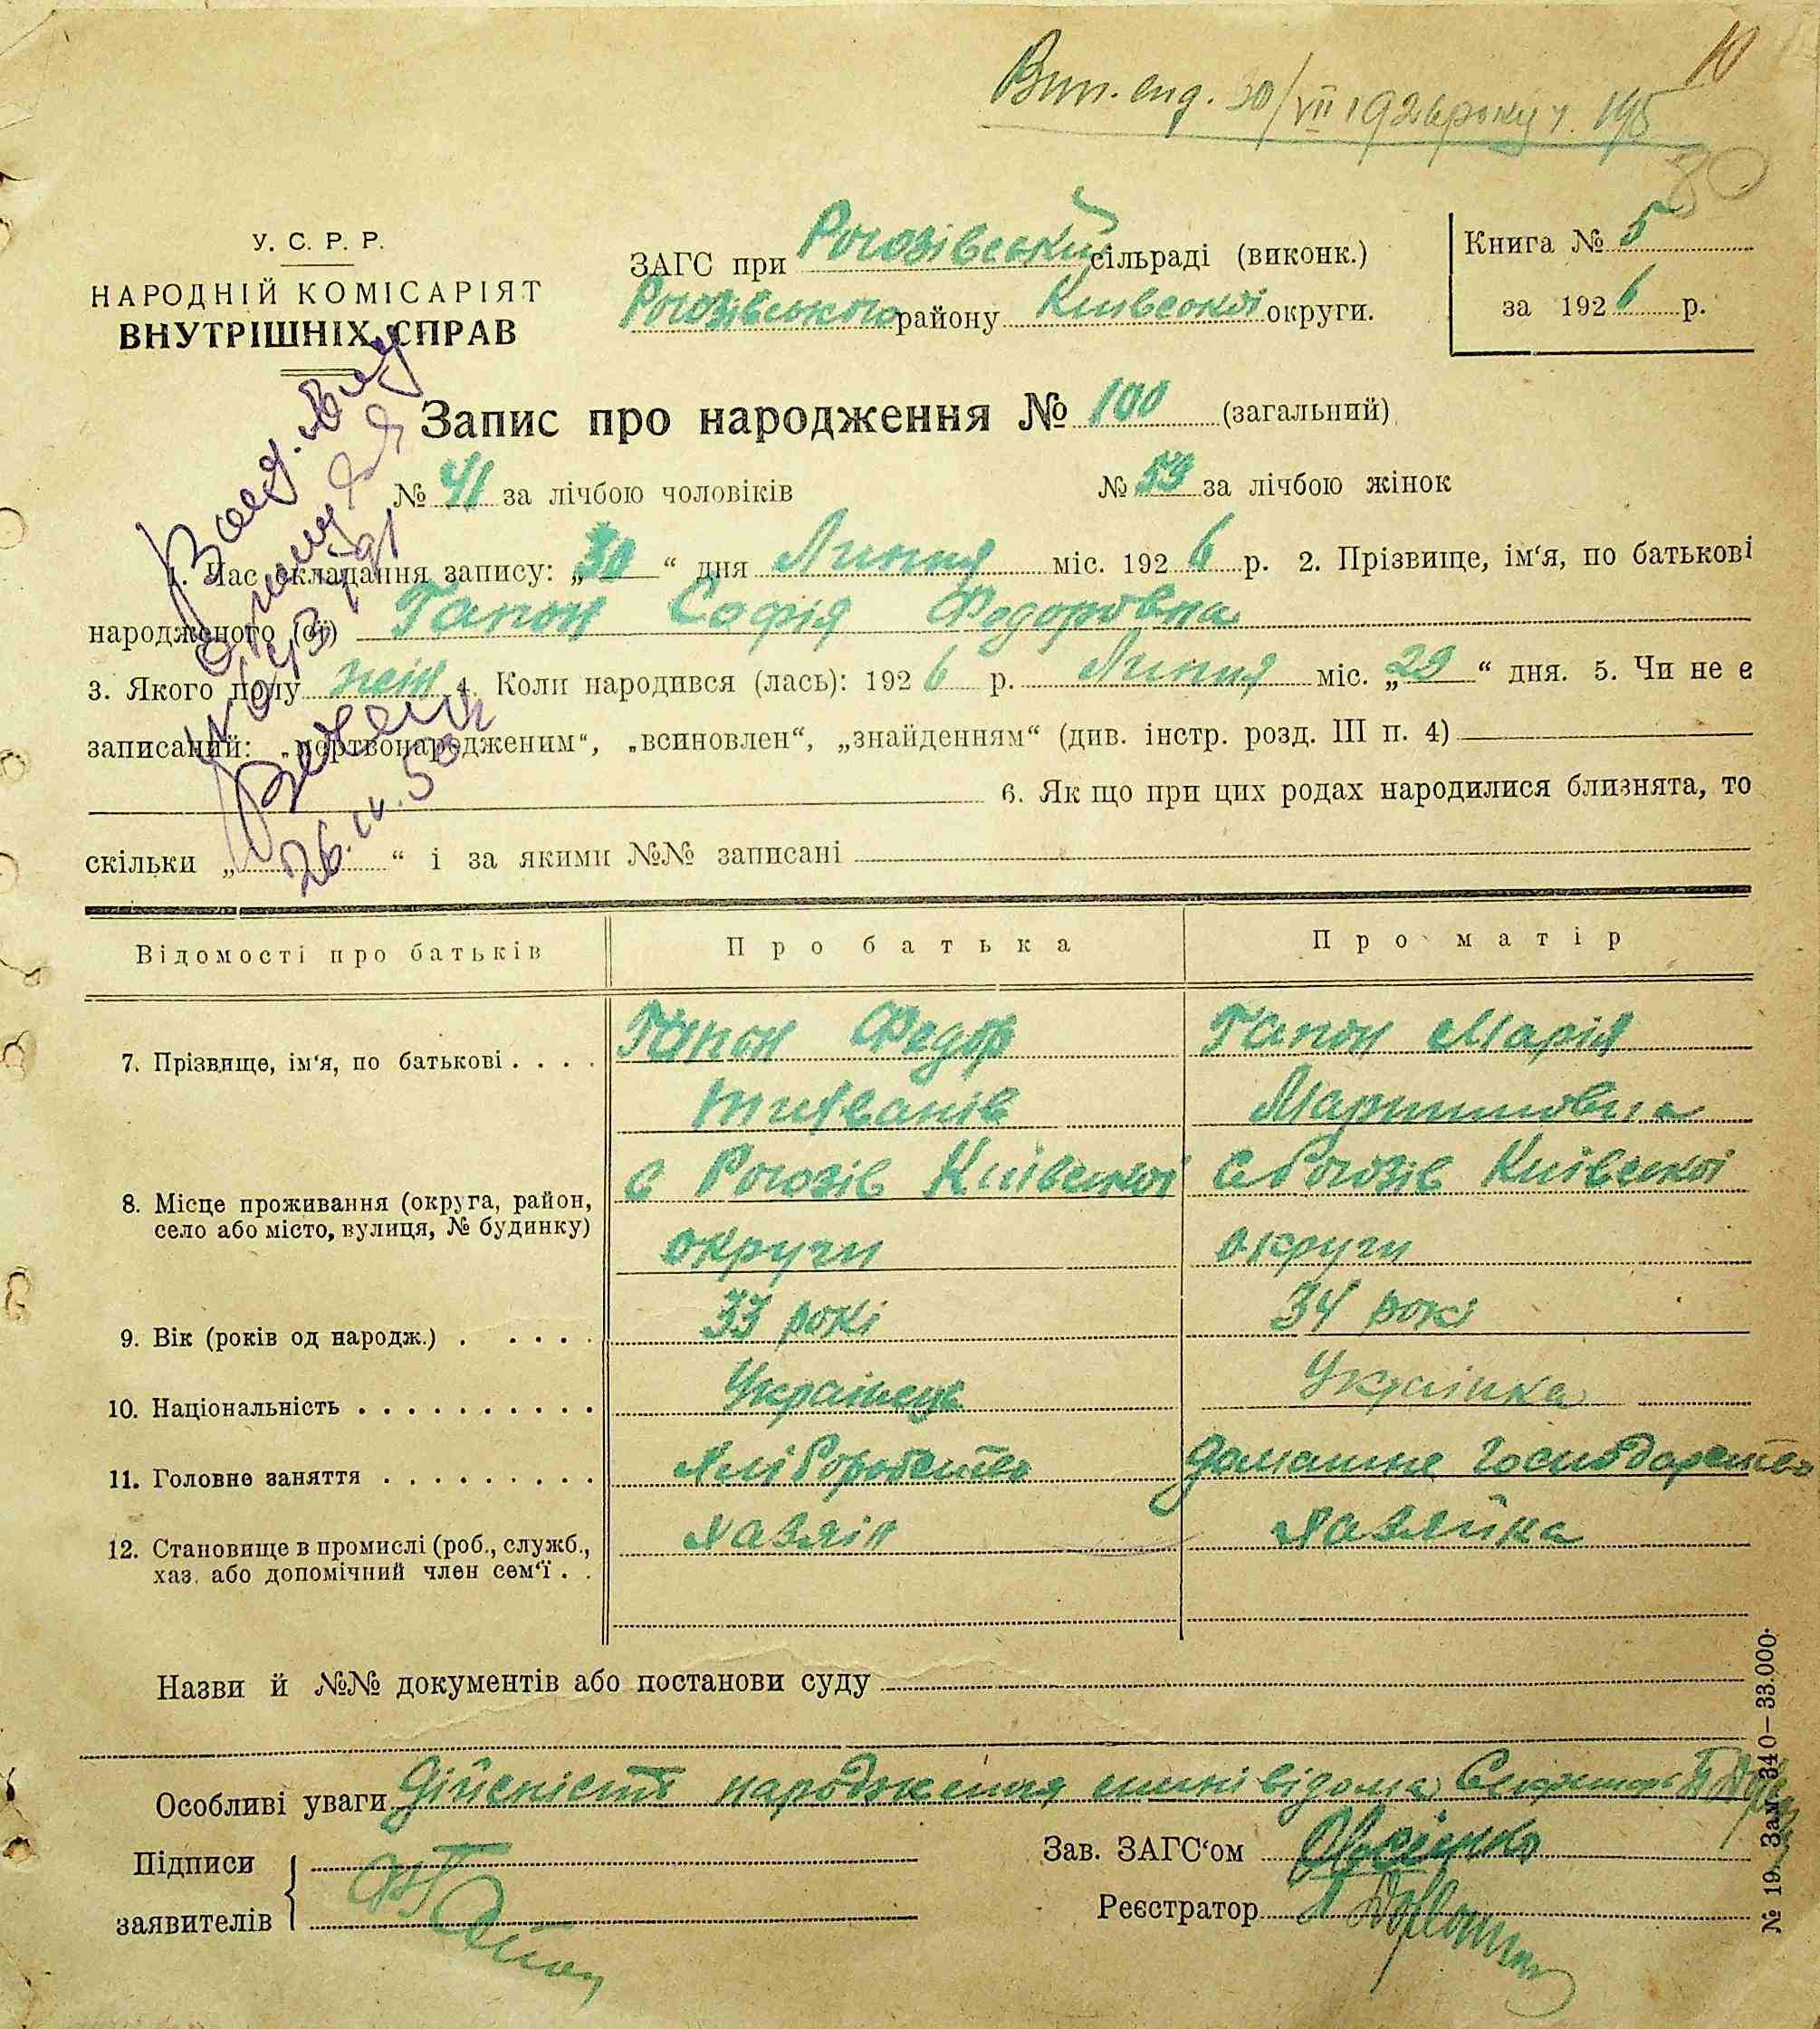 10
Вип. вид. 30/VII 1926 року ч. 195
80
У. С. Р. Р.
НАРОДНІЙ КОМІСАРІЯТ
ВНУТРІШНІХ СПРАВ
ЗАГС при Рогозівський сільраді (виконк.)
Рогозівського району Київської округи.
Книга № 5
за 1926 р.
Запис про народження № 100 (загальний)
№ 41 за лічбою чоловіків № 59 за лічбою жінок
1. Час складання запису: „30“ дня Липня міс. 1926 р. 2. Прізвище, ім‘я, по батькові
народженого (ої) Гапон Софія Федоровна
3. Якого полу жін 4. Коли народився (лась): 1926 р. Липня міс. „29“ дня. 5. Чи не є
записаний: „мертвонародженим“, „всиновлен“, „знайденням“ (див. інстр. розд. III п. 4)
6. Як що при цих родах народилися близнята, то
скільки „ “ і за якими №№ записані
Відомості про батьків Про батька Про матір
7. Прізвище, ім‘я, по батькові . . . . Гапон Федір Гапон Марія
Мартиновна
8. Місце проживання (округа, район, с Рогозів Київської с Рогозів Київської
село або місто, вулиця, № будинку) округи округи
9. Вік (років од народж.) . . . . . 33 рокі 34 рокі
10. Національність . . . . . . . . . . Українець Українка
11. Головне заняття . . . . . . . . . Хліборобство домашнє господарство
12. Становище в промислі (роб., служб., Хазяін Хазяйка
хаз. або допомічний член сем‘ї . .
Назви й №№ документів або постанови суду
Особливі уваги Дійсність народження мині відома Секретарь
Підписи
заявителів
Зав. ЗАГС‘ом Овсіенко
Реєстратор
№ 19. Зам. 340—33.000.
26.IV.50